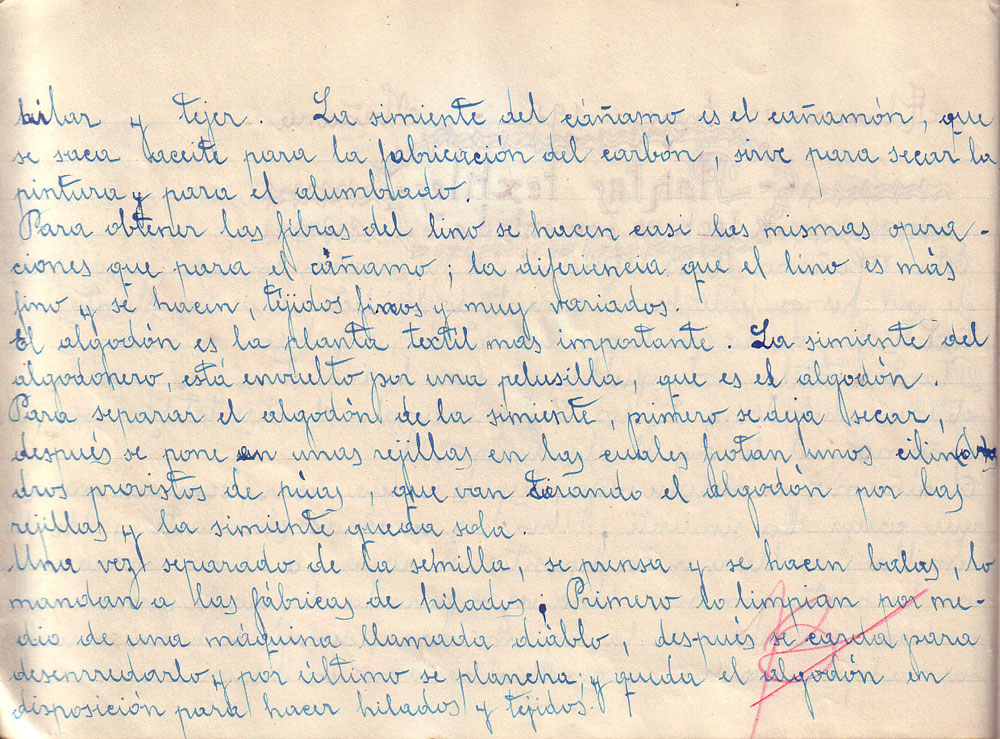 hilar y tejer. La simiente del cáñamo es el cañamón, que
se saca aceite para la fabricación del carbón, sirve para secar la
pintura y para el alumbrado.
Para obtener las fibras del lino se hacen casi las mismas opera-
ciones que para el cáñamo; la diferencia que el lino es más
fino y se hacen, tejidos finos y muy variados.
El algodón es la planta textil mas importante. La simiente del
algodonero, está envuelto por una pelusilla, que es el algodón.
Para separar el algodón de la simiente, primero se deja secar,
después se pone en unas rejillas en las cuales frotan unos cilin
dros provistos de púas, que van tirando el algodón por las
rejillas y la simiente queda sola.
Una vez separado de la semilla, se prensa y se hacen balas, lo
mandan a las fábricas de hilados; Primero lo limpian por me-
dio de una máquina llamada diablo, después se carda para
desenredarlo y por último se plancha; y queda el algodón en
disposición para hacer hilados y tejidos.